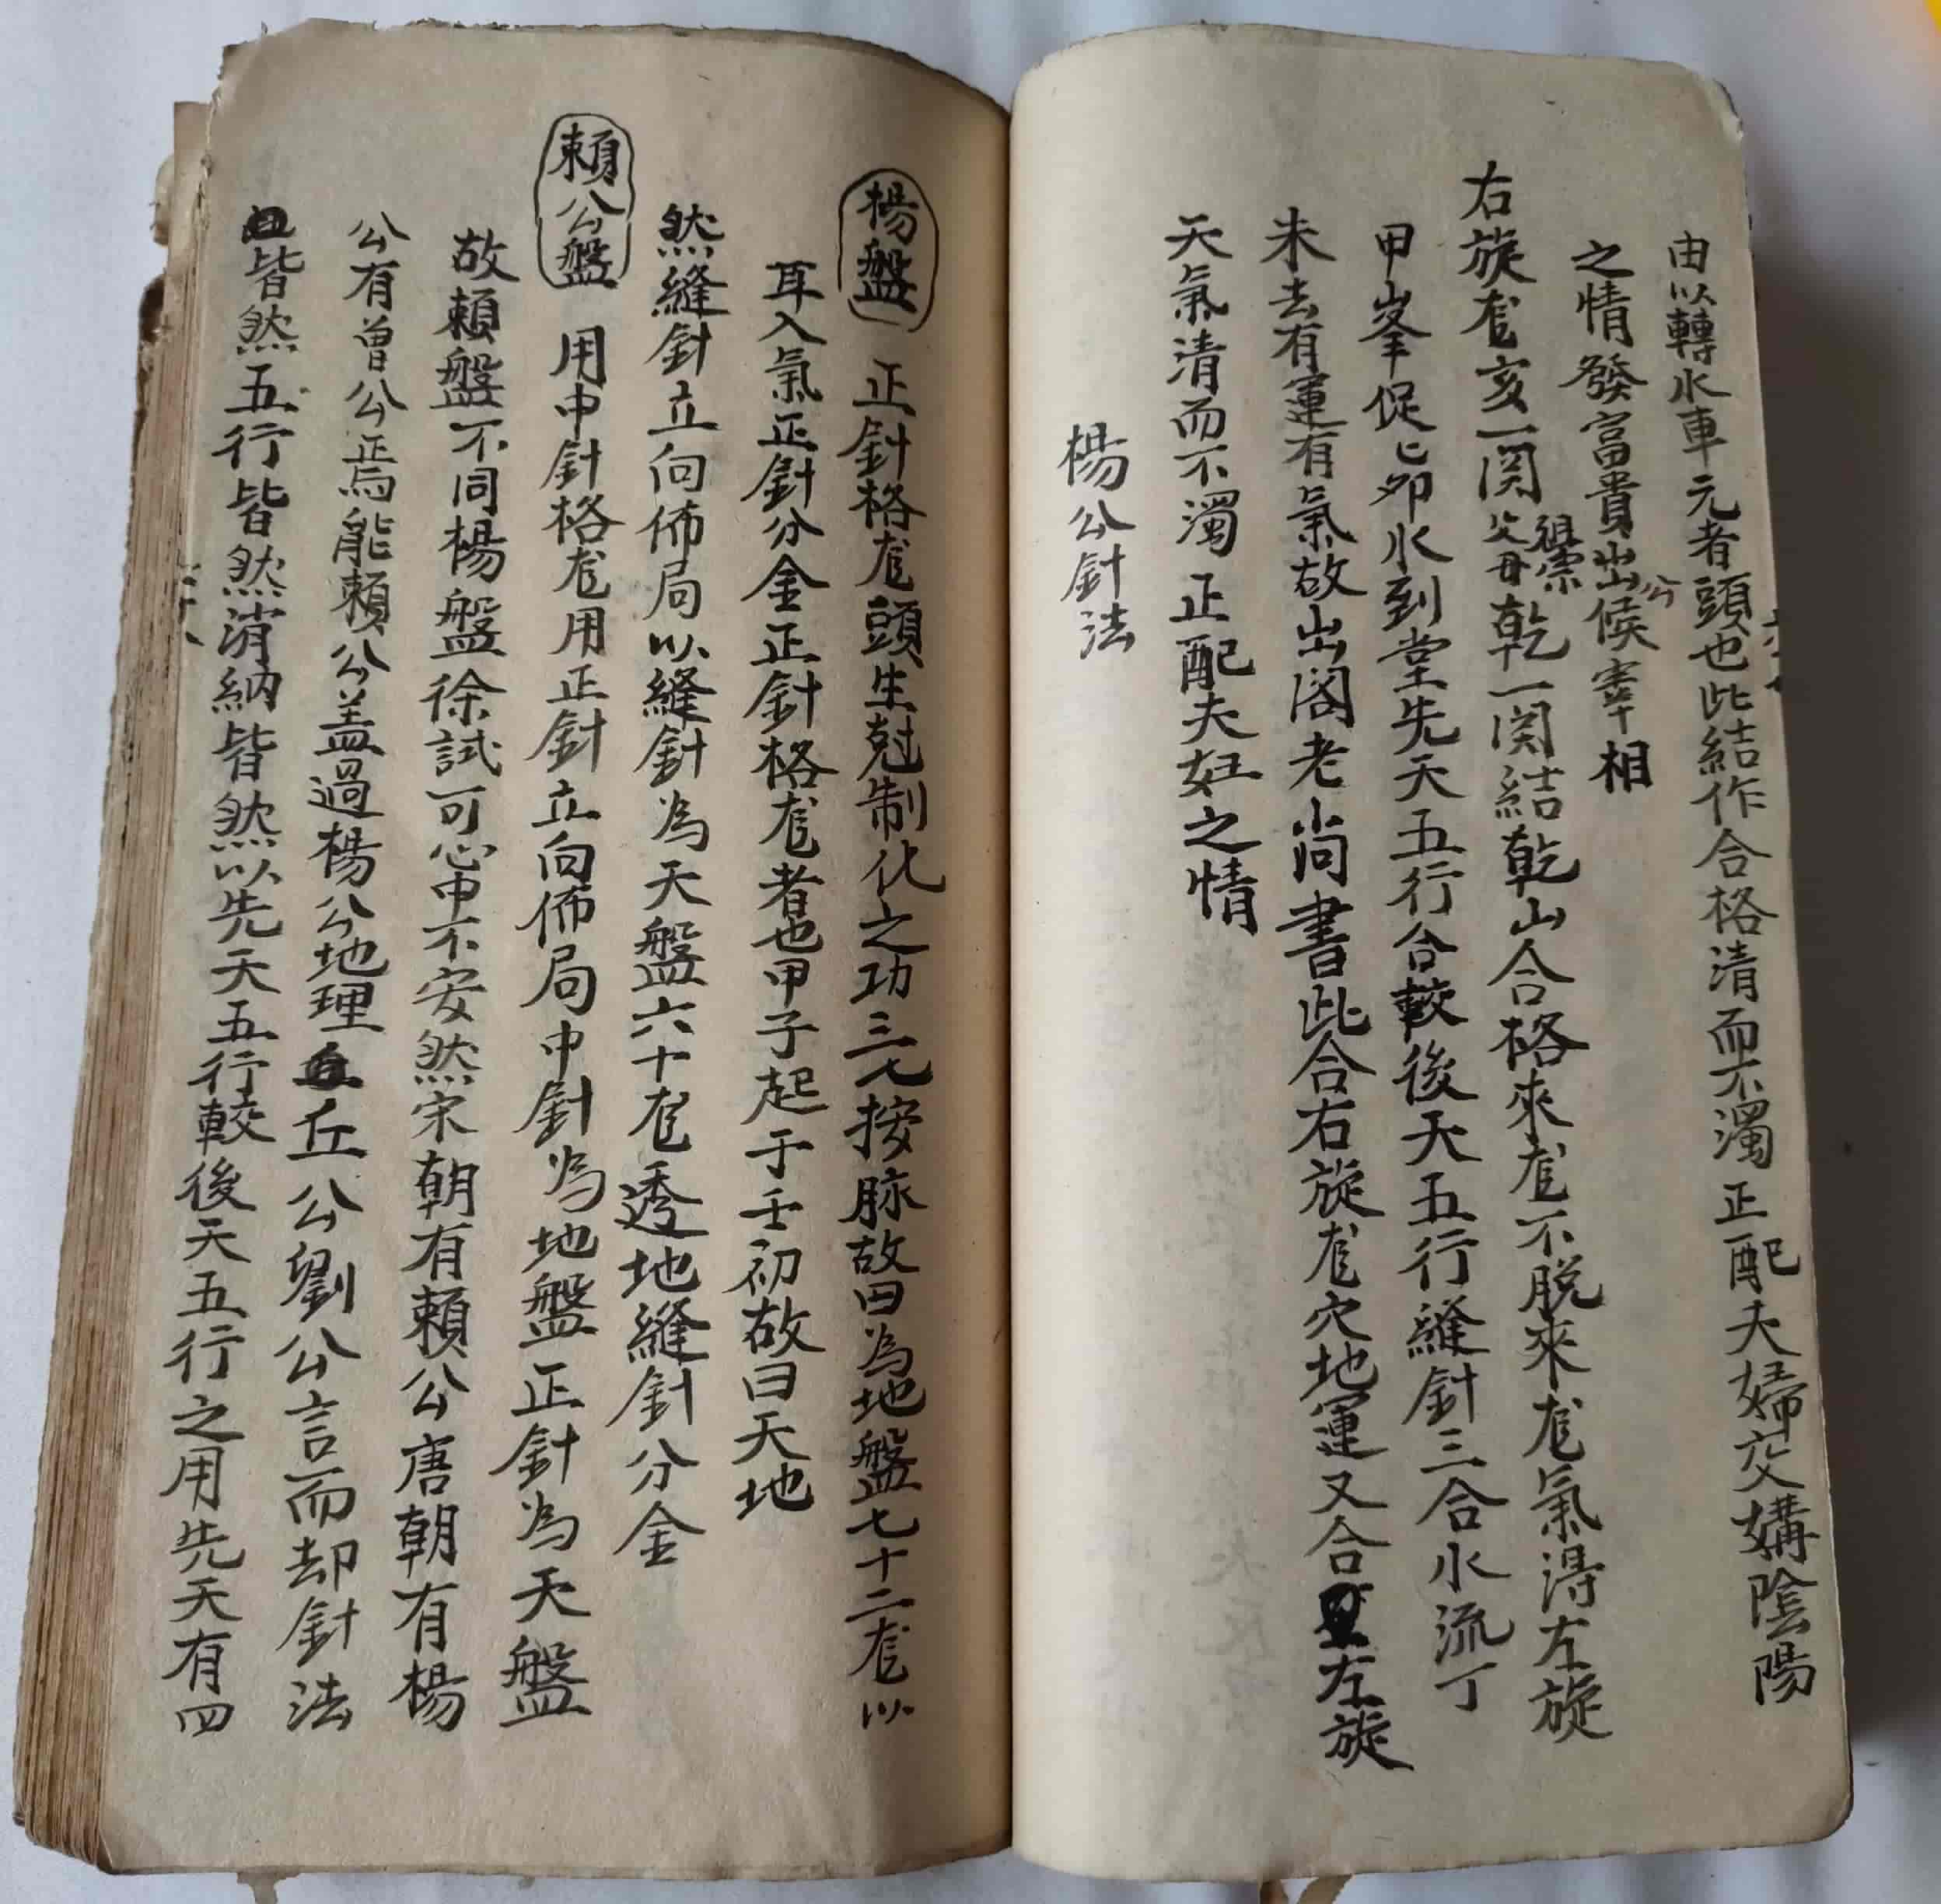 由以轉水車元者頭也此結作合格清而不濁正配夫婦交媾陰陽
之情發富貴出公候宰相
右旋厐亥一関父母祖宗乾一関結乾山合格來厐不脱來厐氣得左旋
甲峯促乙卯水到堂先天五行合較後天五行縫針三合水流丁
未去有運有氣故出閣老尚書此合右旋厐穴地運又合左旋
天氣清而不濁正配夫妇之情
楊公針法
楊盤 正針格厐頭生尅制化之功三七按脉故曰為地盤七十二厐以
耳入氣正針分金正針格厐者也甲子起于壬初故曰天地
然縫針立向佈局以縫針為天盤六十厐透地縫針分金
賴公盤 用中針格厐用正針立向佈局中針為地盤正針為天盤
故賴盤不同楊盤徐試可心中不安然宋朝有賴公唐朝有楊
公有曾公焉能賴公盖過楊公地理丘公劉公言而却針法
皆然五行皆然消納皆然以先天五行較後天五行之用先天有四